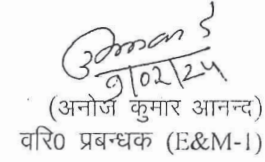 9/02/24
(अनोज कुमार आनन्द)
वरि0 प्रबन्धक (E&M-I)